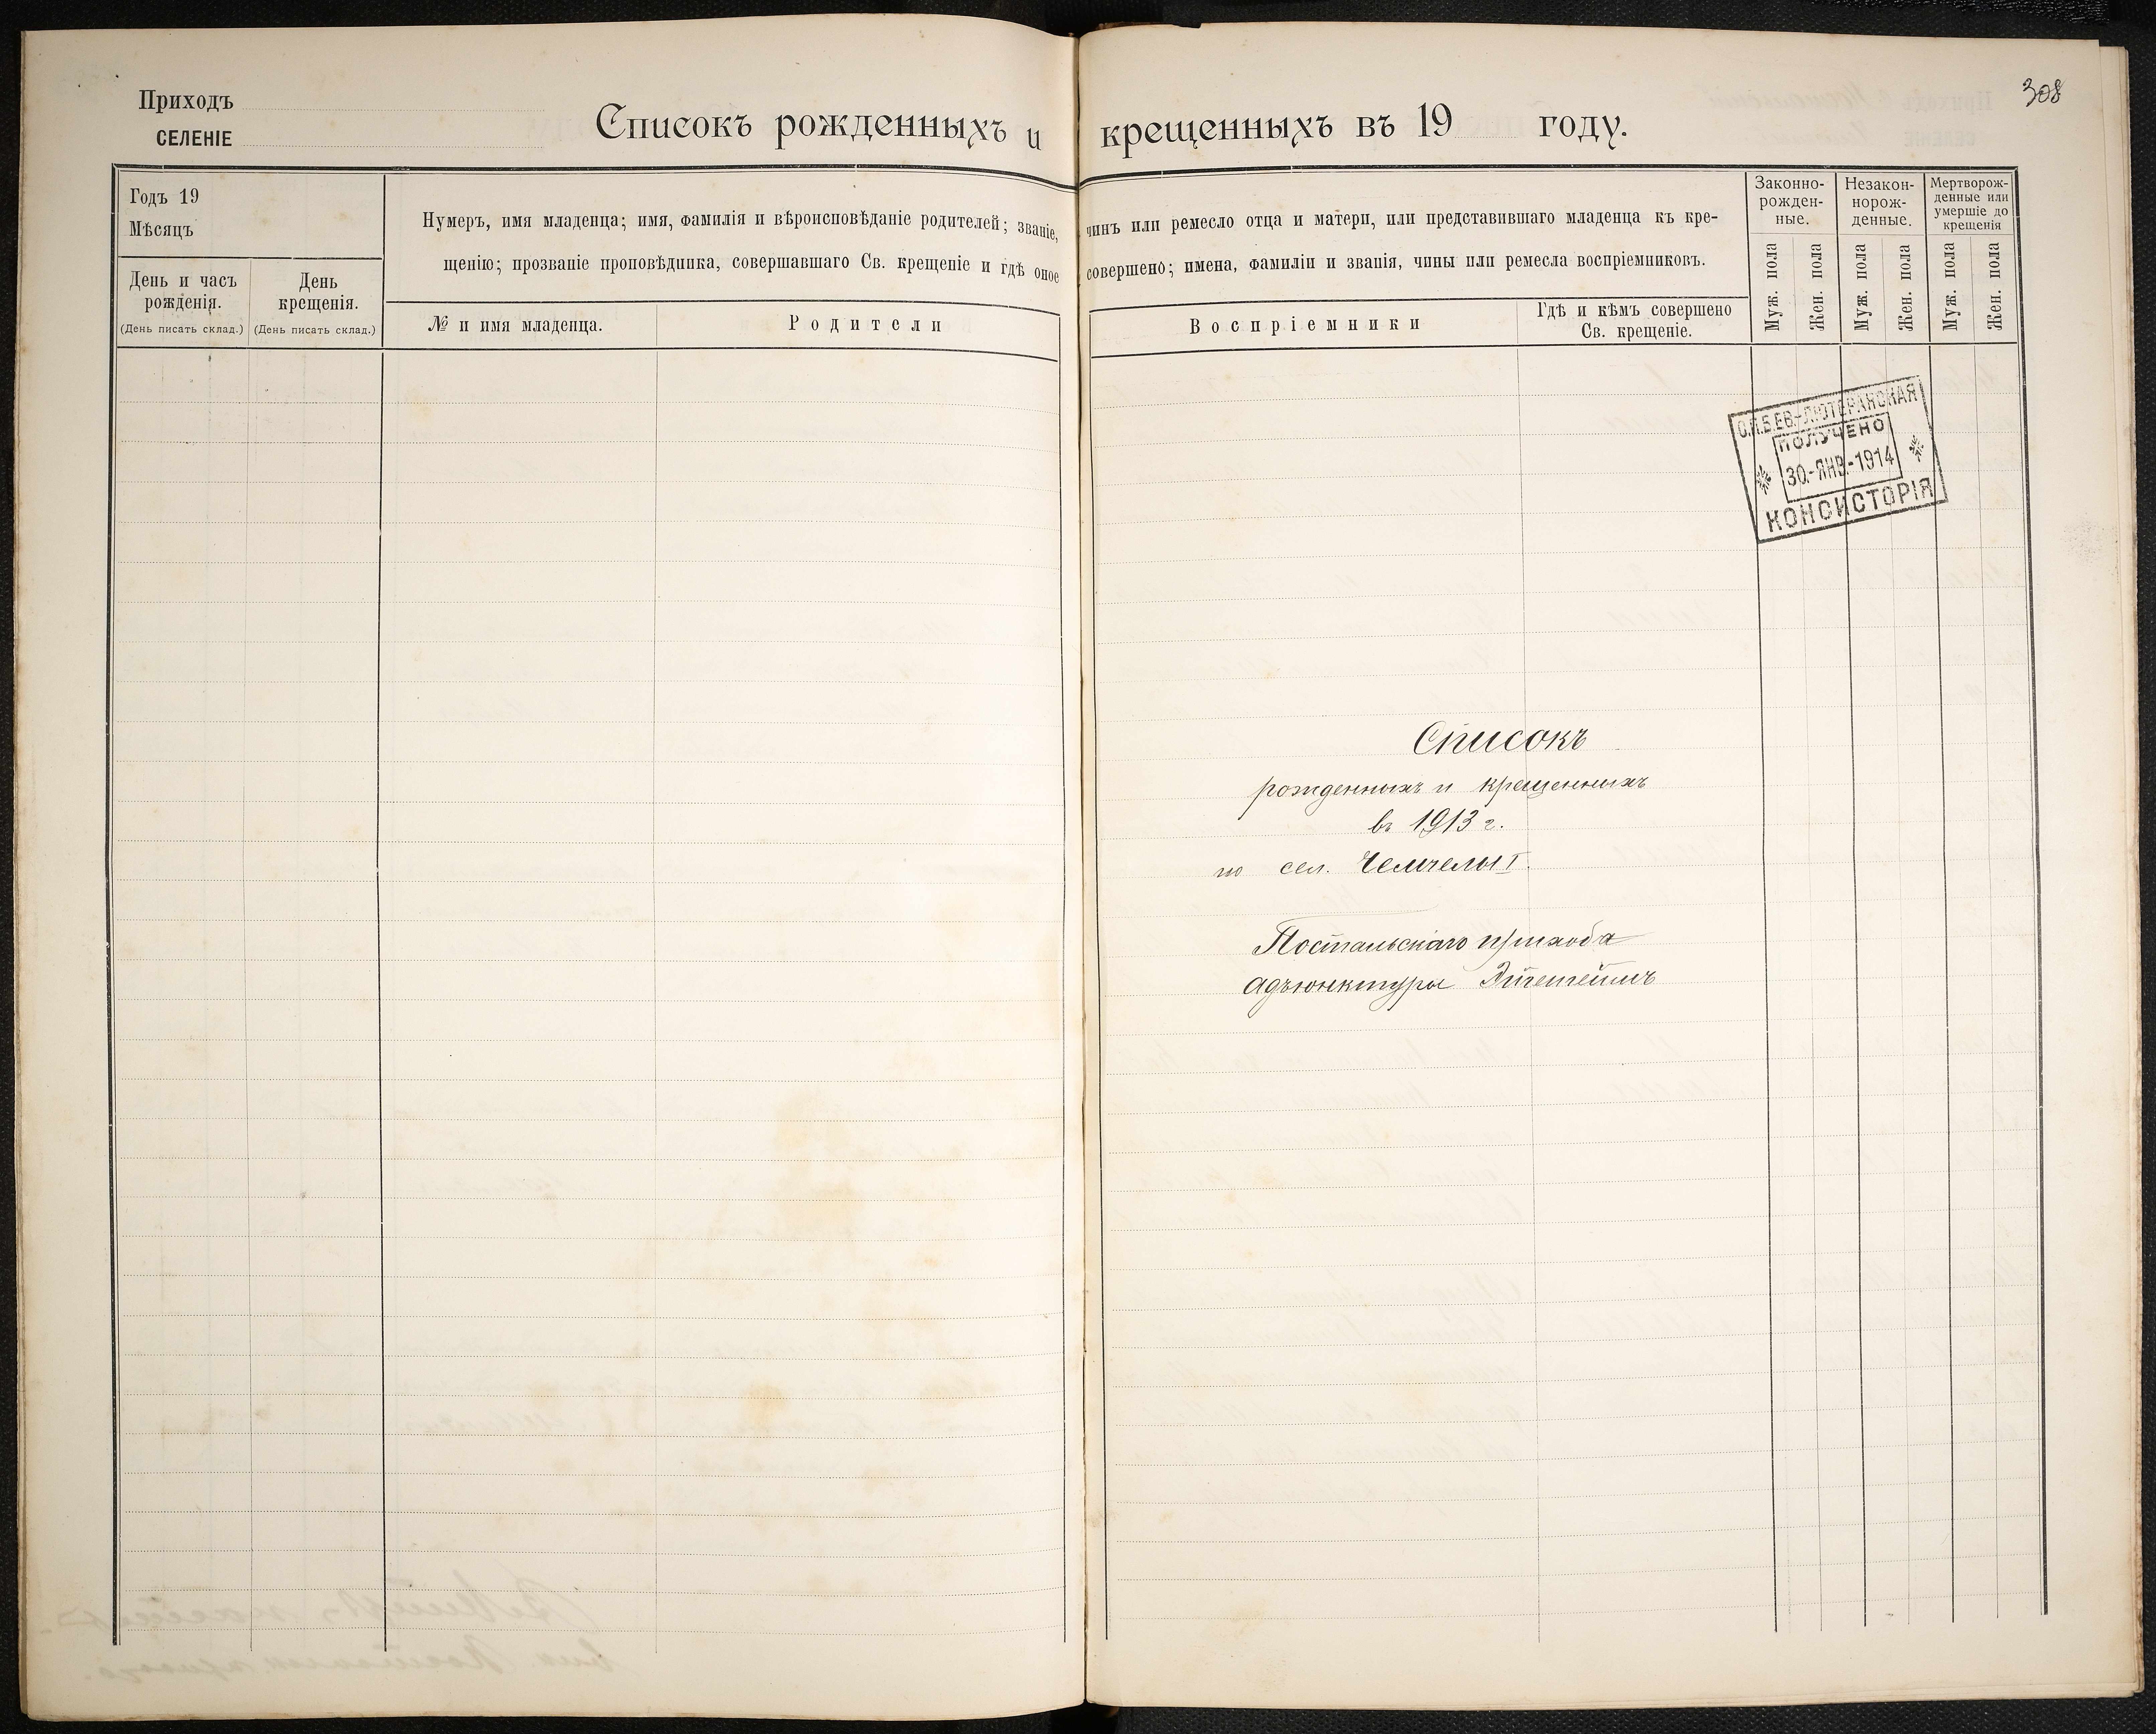 Приходъ
СЕЛЕНІЕ
Списокъ рожденныхъ и крещенныхъ въ 19 году.
308
Годъ 19
Мѣсяцъ
День и часъ
рожденія.
(День писать склад.)
День
крещенія.
(День писать склад.)
Нумеръ, имя младенца; имя, фамилія и вѣроисповѣданіе родителей; званіе, чинъ или ремесло отца и матери, или представившаго младенца къ кре-
щенію; прозваніе проповѣдника, совершавшаго Св. крещеніе и гдѣ оное совершено; имена, фамиліи и званія, чины или ремесла воспріемниковъ.
№ и имя младенца.
Родители
Воспріемники
Гдѣ и кѣмъ совершено
Св. крещеніе.
Законно-
рожден-
ные.
Незакон-
норож-
денные.
Мертворож-
денные или
умершіе до
крещенія
Муж. пола
Жен. пола
Муж. пола
Жен. пола
Муж. пола
Жен. пола
С.П.Б.ЕВ.-ЛЮТЕРАНСКАЯ
ПОЛУЧЕНО
30.-ЯНВ.-1914
КОНСИСТОРІЯ
Списокъ
рожденныхъ и крещенныхъ
въ 1913 г.
по сел. Чемчелы I.
Постальскаго прихода
адъюнктуры